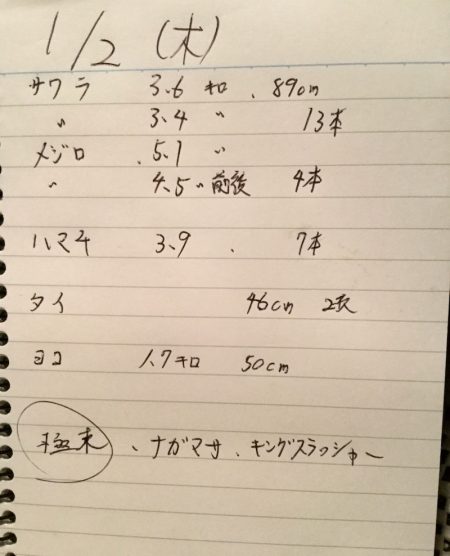 1/2 (木)
サワラ 3.6 キロ . 89cm
〃 3.4 〃 13本
メジロ . 5.1 〃
〃 4.5 〃 前後 4本
ハマチ 3.9 . 7本
タイ 46cm 2枚
ヨコ 1.7キロ 50cm
、ナガマサ、キングスラッシャー